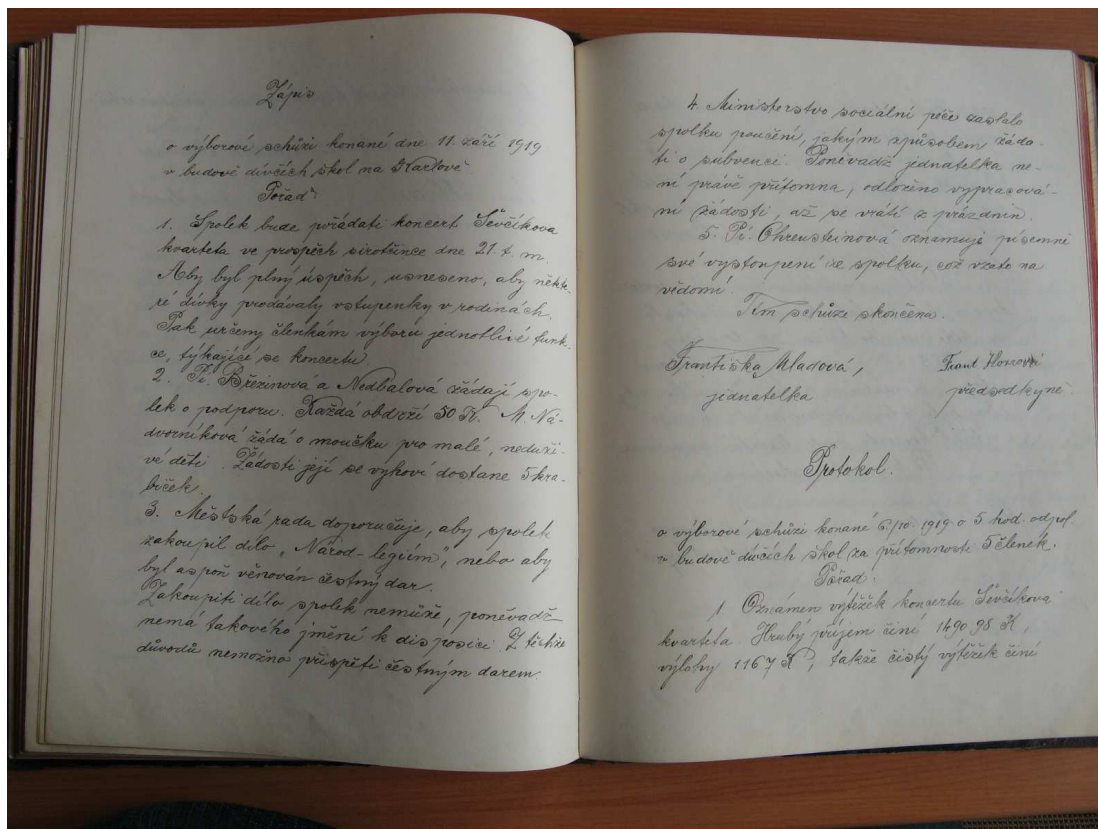 Zápis
o výborové schůzi konané dne 11. září 1919
v budově dívčích škol na Karlově.
Pořad:
1. Spolek bude pořádati koncert Ševčíkova
kvarteta ve prospěch sirotčince dne 21. t. m.
Aby byl plný úspěch, usneseno, aby někte-
ré dívky prodávaly vstupenky v rodinách.
Pak určeny členkám výboru jednotlivé funk-
ce, týkající se koncertu.
2. Pí. Březinová a Nedbalová žádají spo-
lek o podporu. Každá obdrží 50 K. M. Ná-
dvorníková žádá o moučku pro malé, neduži-
vé děti. Žádosti její se vyhoví dostane 5 kra-
biček.
3. Městská rada doporučuje, aby spolek
zakoupil dílo „Národ-legiím", nebo aby
byl aspoň věnován čestný dar.
Zakoupiti dílo spolek nemůže, poněvadž
nemá takového jmění k disposici. Z těchže
důvodů nemožno přispěti čestným darem.
4. Ministerstvo sociální péče zaslalo
spolku poučení, jakým způsobem žáda-
ti o subvenci. Poněvadž jednatelka ne-
ní právě přítomna, odloženo vypracová-
ní žádosti, až se vrátí z prázdnin.
5. Pí. Ohrensteinová oznamuje písemně
své vystoupení ze spolku, což vzato na
vědomí.
Tím schůze skončena.
Františka Mladová, Frant
jednatelka předsedkyně
Protokol.
o výborové schůzi konané 6./10. 1919 o 5 hod. odpol.
v budově dívčích škol za přítomnosti 5 členek.
Pořad:
1. Oznámen výtěžek koncertu Ševčíkova
kvarteta. Hrubý příjem činí 1490 98 K,
výlohy 1167 K, takže čistý výtěžek činí